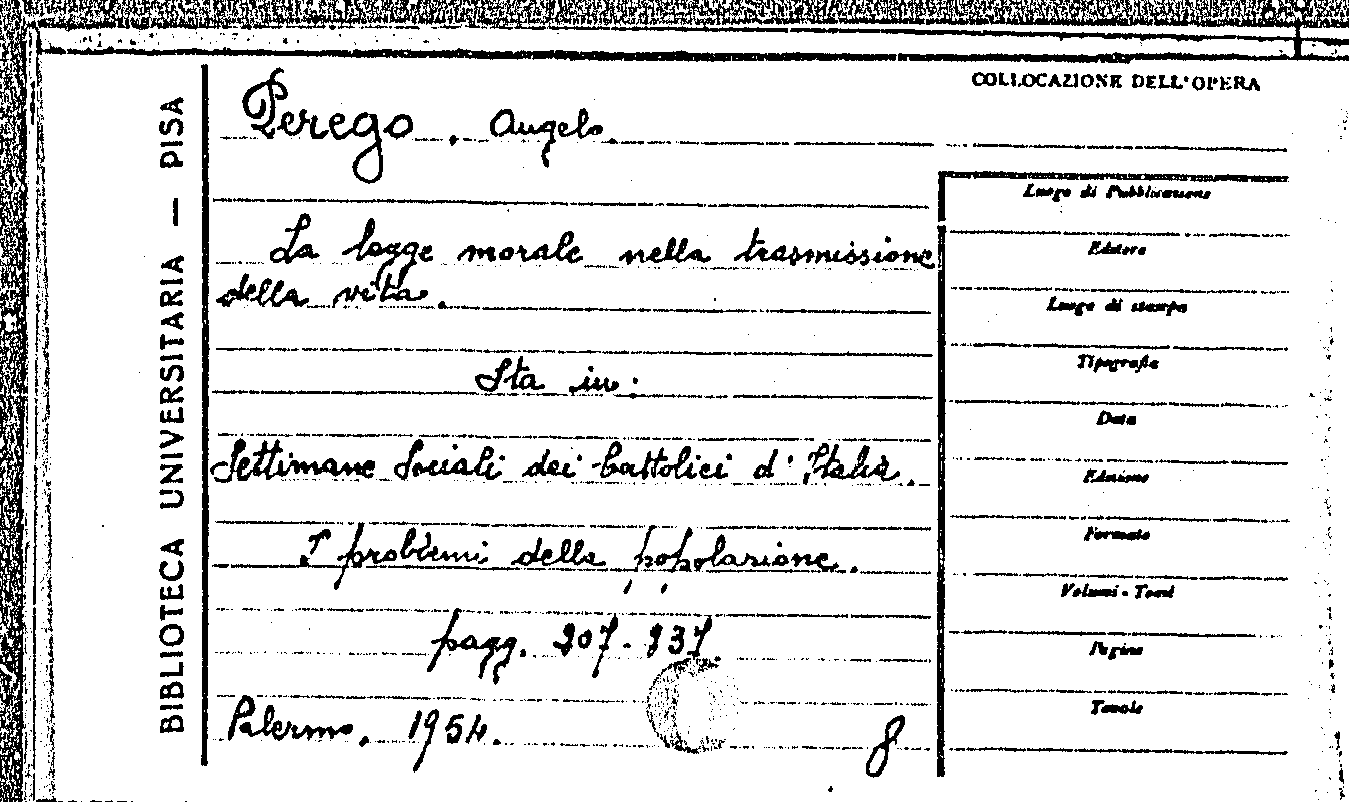 BIBLIOTECA UNIVERSITARIA — PISA
COLLOCAZIONE DELL'OPERA
Perego, Angelo.
La legge morale nella trasmissione
della vita.
Sta in:
Settimane Sociali dei Cattolici d'Italia.
I problemi della popolazione.
pagg. 207-237
Palermo, 1954.
8
Luogo di Pubblicazione
Editore
Luogo di stampa
Tipografia
Data
Edizione
Formato
Volumi - Tomi
Pagine
Tavole